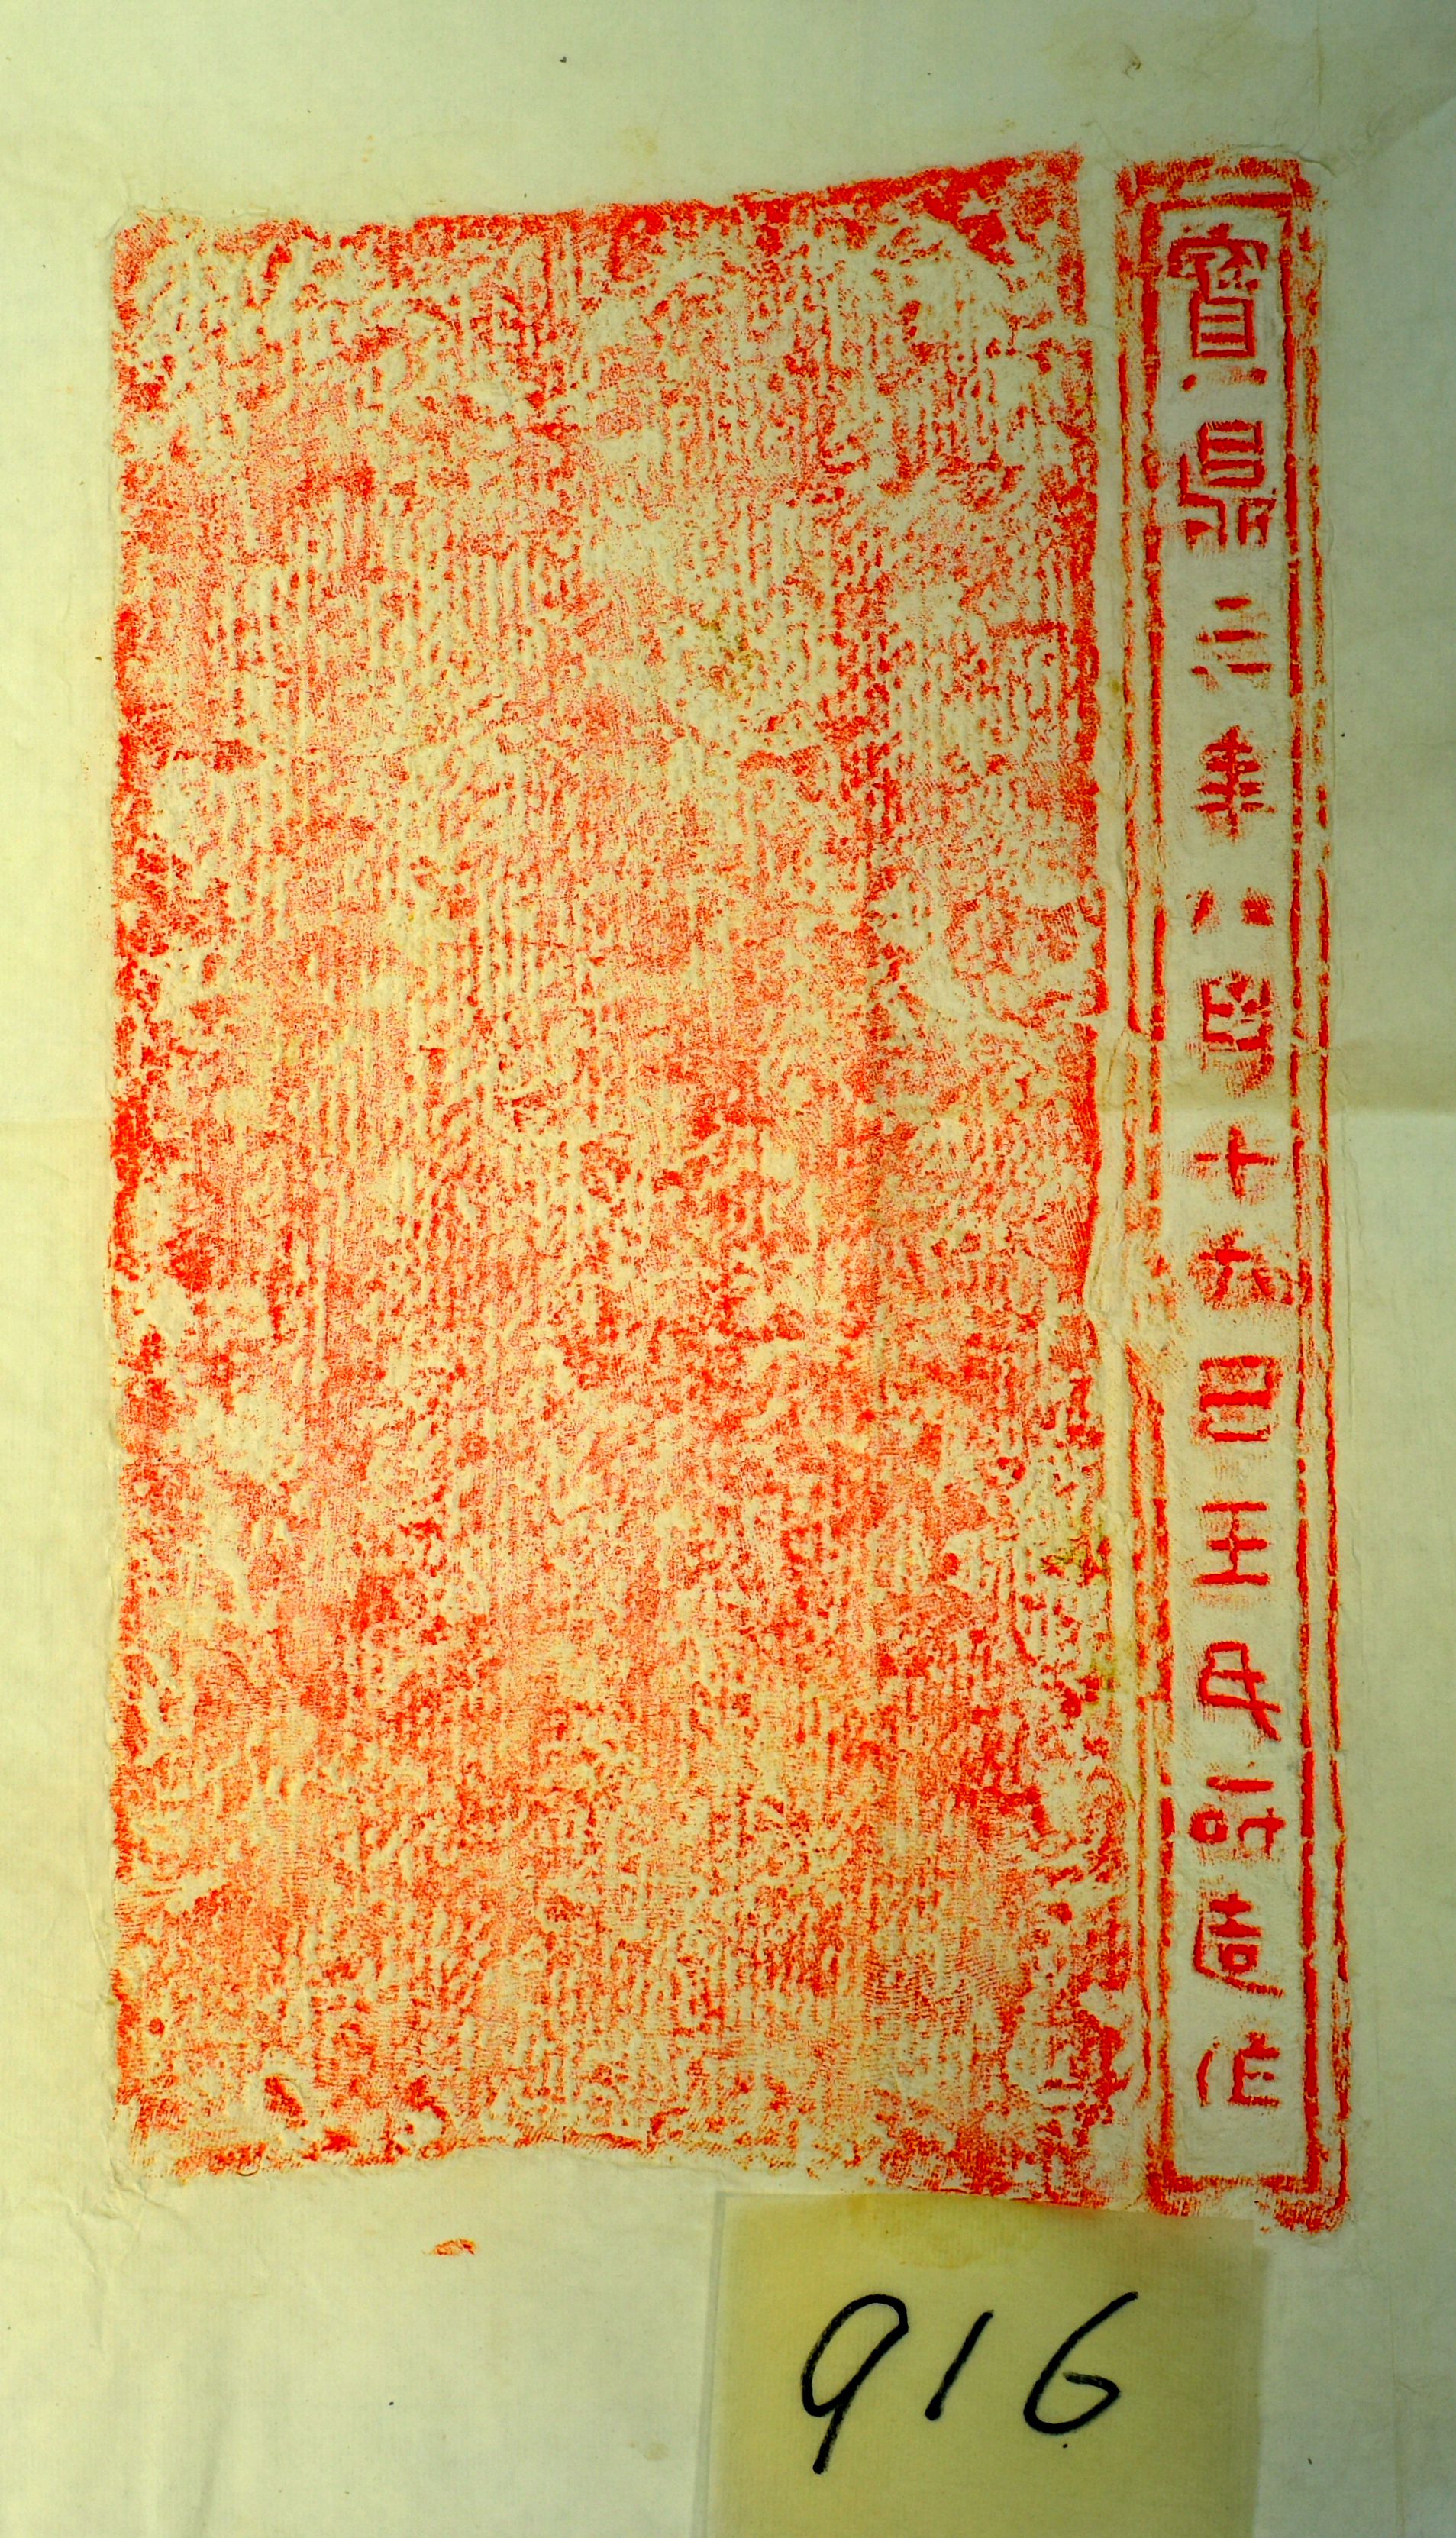 寶鼎三年八月十六日王氏所造作
916